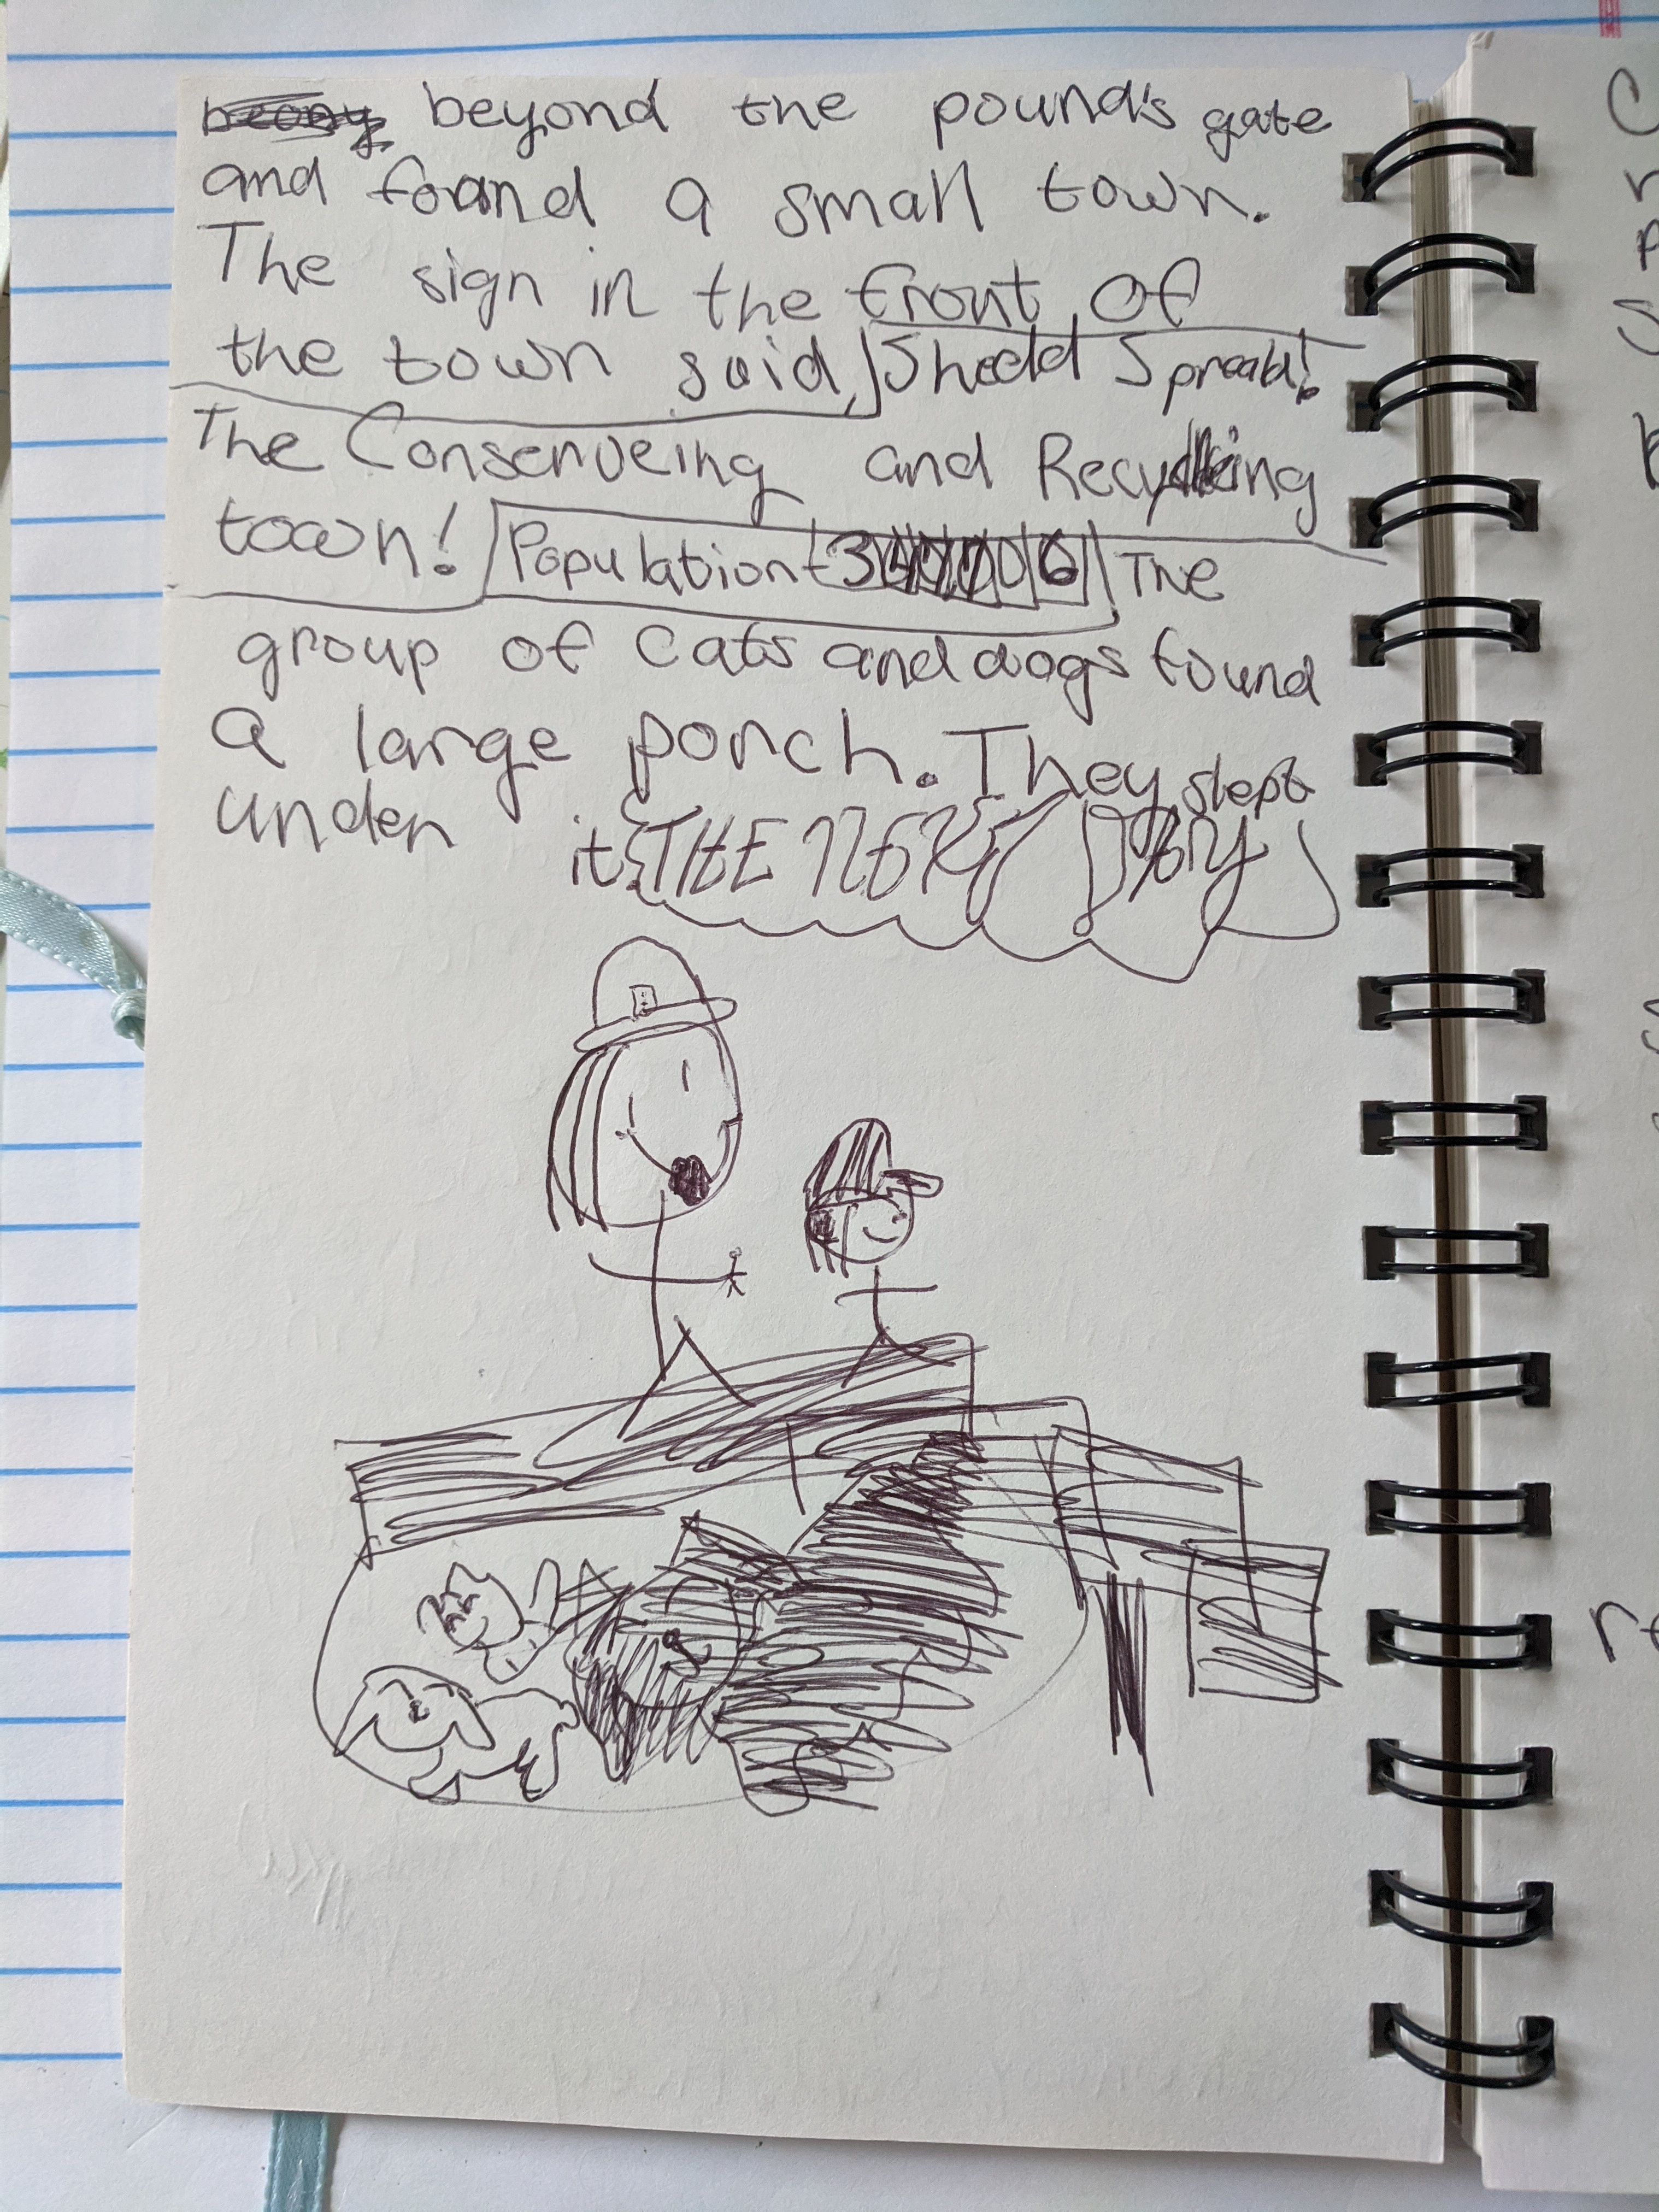 beyond the pound's gate
and found a small town.
The sign in the front of
the town said, Shedd Spread!
The Conserveing and Recycling
town! Population
The
group of cats and dogs found
a large porch. They slept
under it THE NEXT DAY